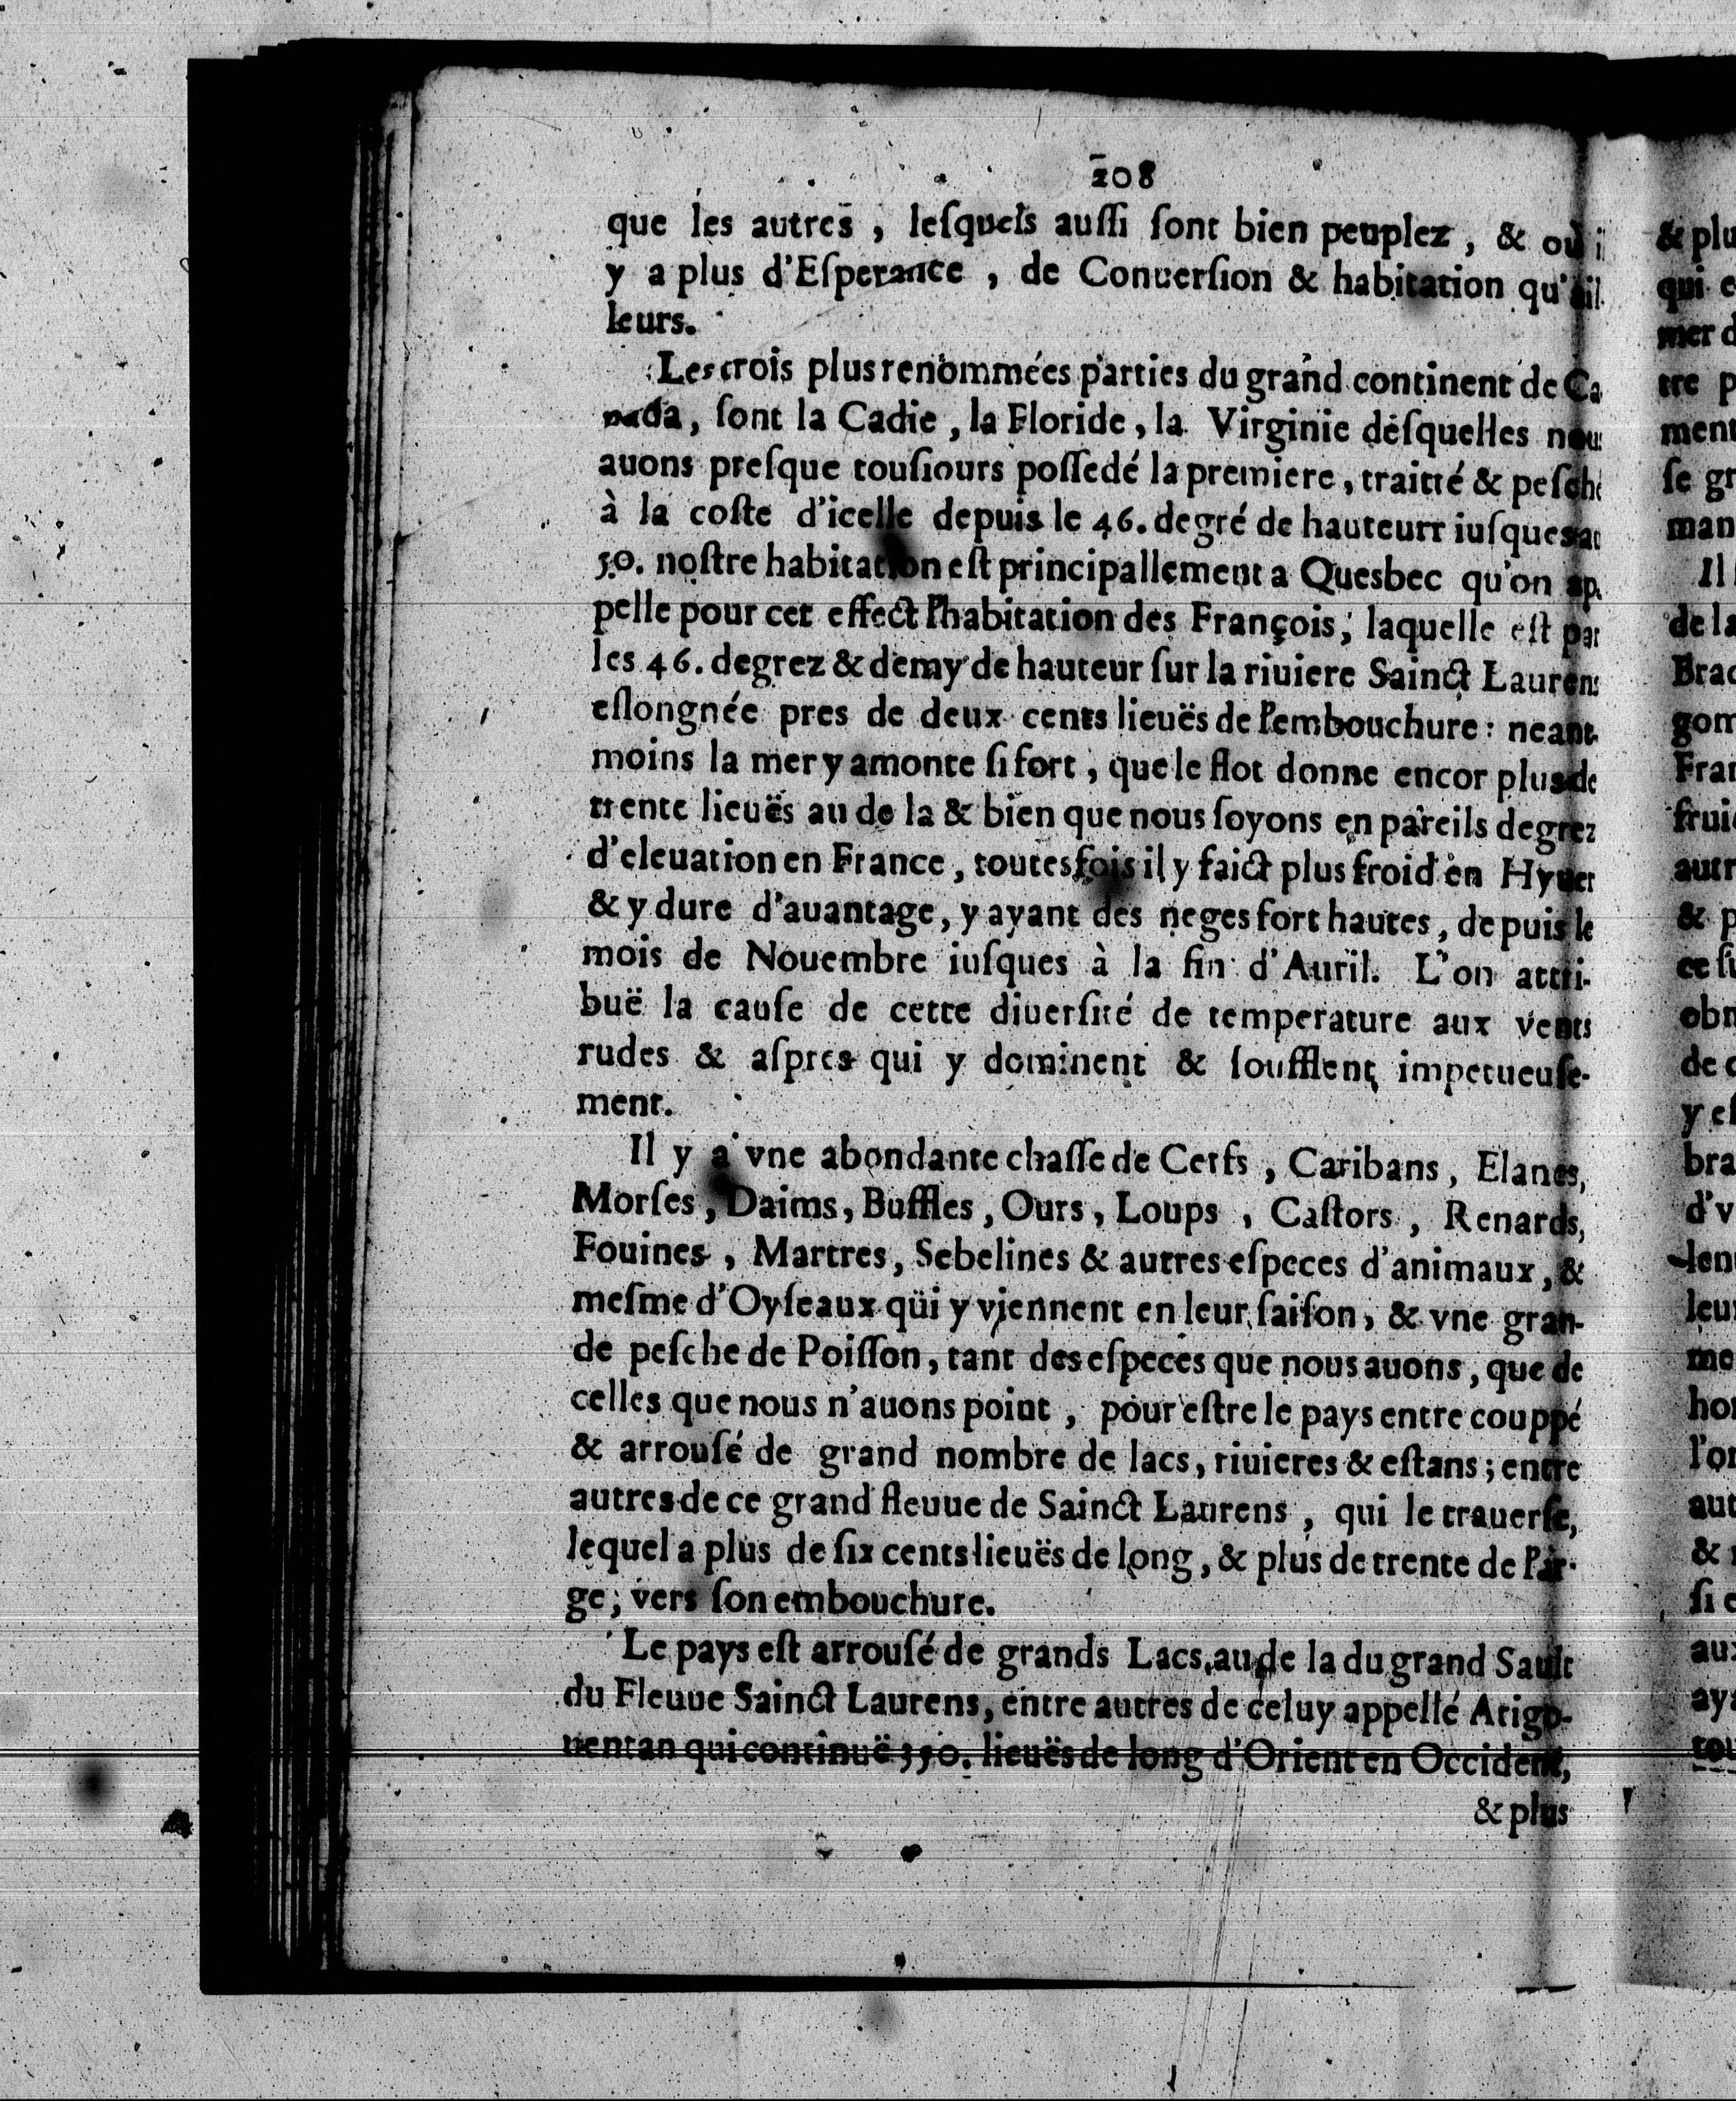 208
que les autres, leſquels auſſi ſont bien peuplez, & où i
y a plus d'Eſperance, de Conuerſion & habitation qu'ail
leurs.
Les trois plus renommées parties du grand continent de Ca
nada, ſont la Cadie, la Floride, la Virginie deſquelles nou
auons preſque touſiours poſſedé la premiere, traitté & peſché
à la coſte d'icelle depuis le 46. degré de hauteurr iuſques au
50. noſtre habitation eſt principallement a Quesbec qu'on ap-
pelle pour cet effect l'habitation des François, laquelle eſt par
les 46. degrez & demy de hauteur ſur la riuiere Sainct Laurens
eſlongnée pres de deux cents lieuës de l'embouchure: neant-
moins la mer y amonte ſi fort, que le flot donne encor plus de
trente lieuës au de la & bien que nous ſoyons en pareils degrez
d'eleuation en France, toutesfois il y faict plus froid en Hyuer
& y dure d'auantage, y ayant des neges fort hautes, depuis le
mois de Nouembre iuſques à la fin d'Auril. L'on attri-
buë la cauſe de cette diuerſité de temperature aux vents
rudes & aſpres qui y dominent & ſoufflent impetueuſe-
ment.
Il y a vne abondante chaſſe de Cerfs, Caribans, Elanes,
Morſes, Daims, Buffles, Ours, Loups, Caſtors, Renards,
Fouines, Martres, Sebelines & autres eſpeces d'animaux, &
meſme d'Oyſeaux qui y viennent en leur ſaiſon, & vne gran-
de peſche de Poiſſon, tant des eſpeces que nous auons, que de
celles que nous n'auons point, pour eſtre le pays entre couppé
& arrouſé de grand nombre de lacs, riuieres & eſtans; entre
autres de ce grand fleuue de Sainct Laurens, qui le trauerſe,
lequel a plus de ſix cents lieuës de long, & plus de trente de l'ar-
ge, vers ſon embouchure.
Le pays eſt arrouſé de grands Lacs, au de la du grand Sault
du Fleuue Sainct Laurens, entre autres de celuy appellé Atigo-
uentan qui continuë 350. lieuës de long d'Orient en Occident,
& plus
& plu
qui e
mer d
tre p
ment
ſe gr
man
Il
de la
Brac
gon
Fran
frui
autr
& p
ce ſu
obn
de c
y eſ
bra
d'v
len
leu
me
hon
l'on
aut
&
ſi e
au
ay
tou